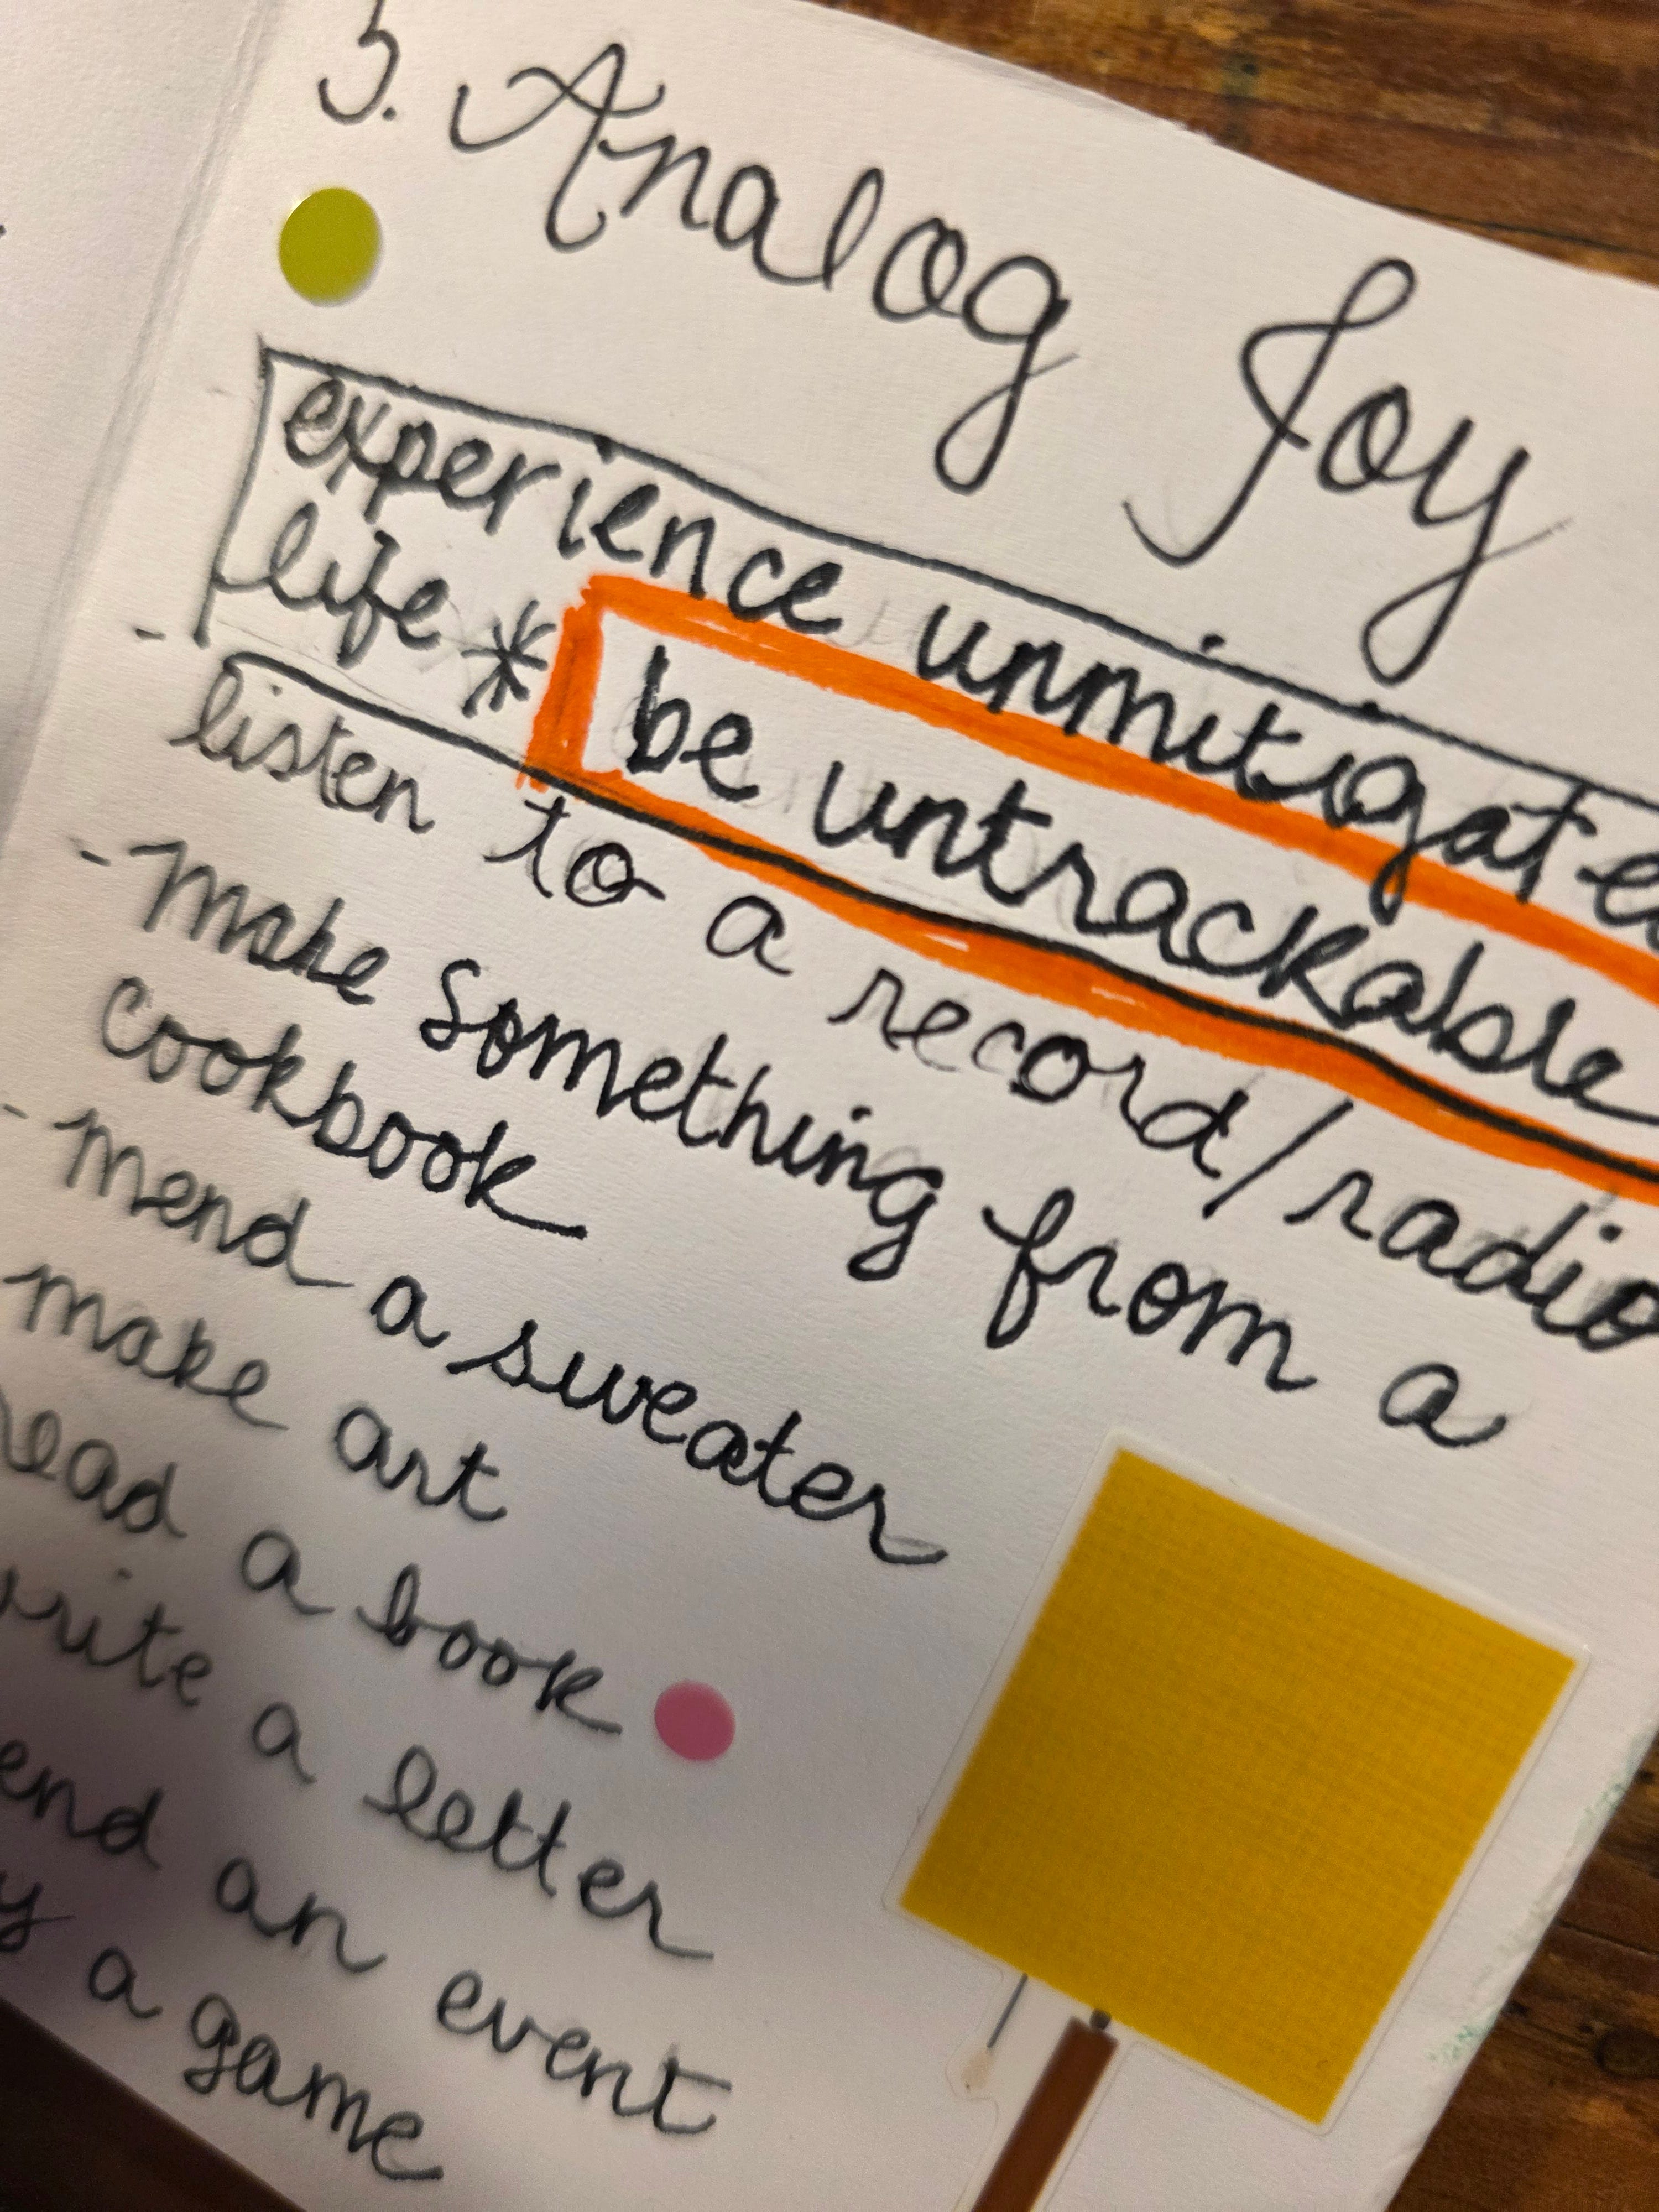 5. Analog Joy
experience unmitigated
life * be untrackable
- listen to a record/radio
- make something from a
cookbook
- mend a sweater
make art
read a book
write a letter
end an event
y a game